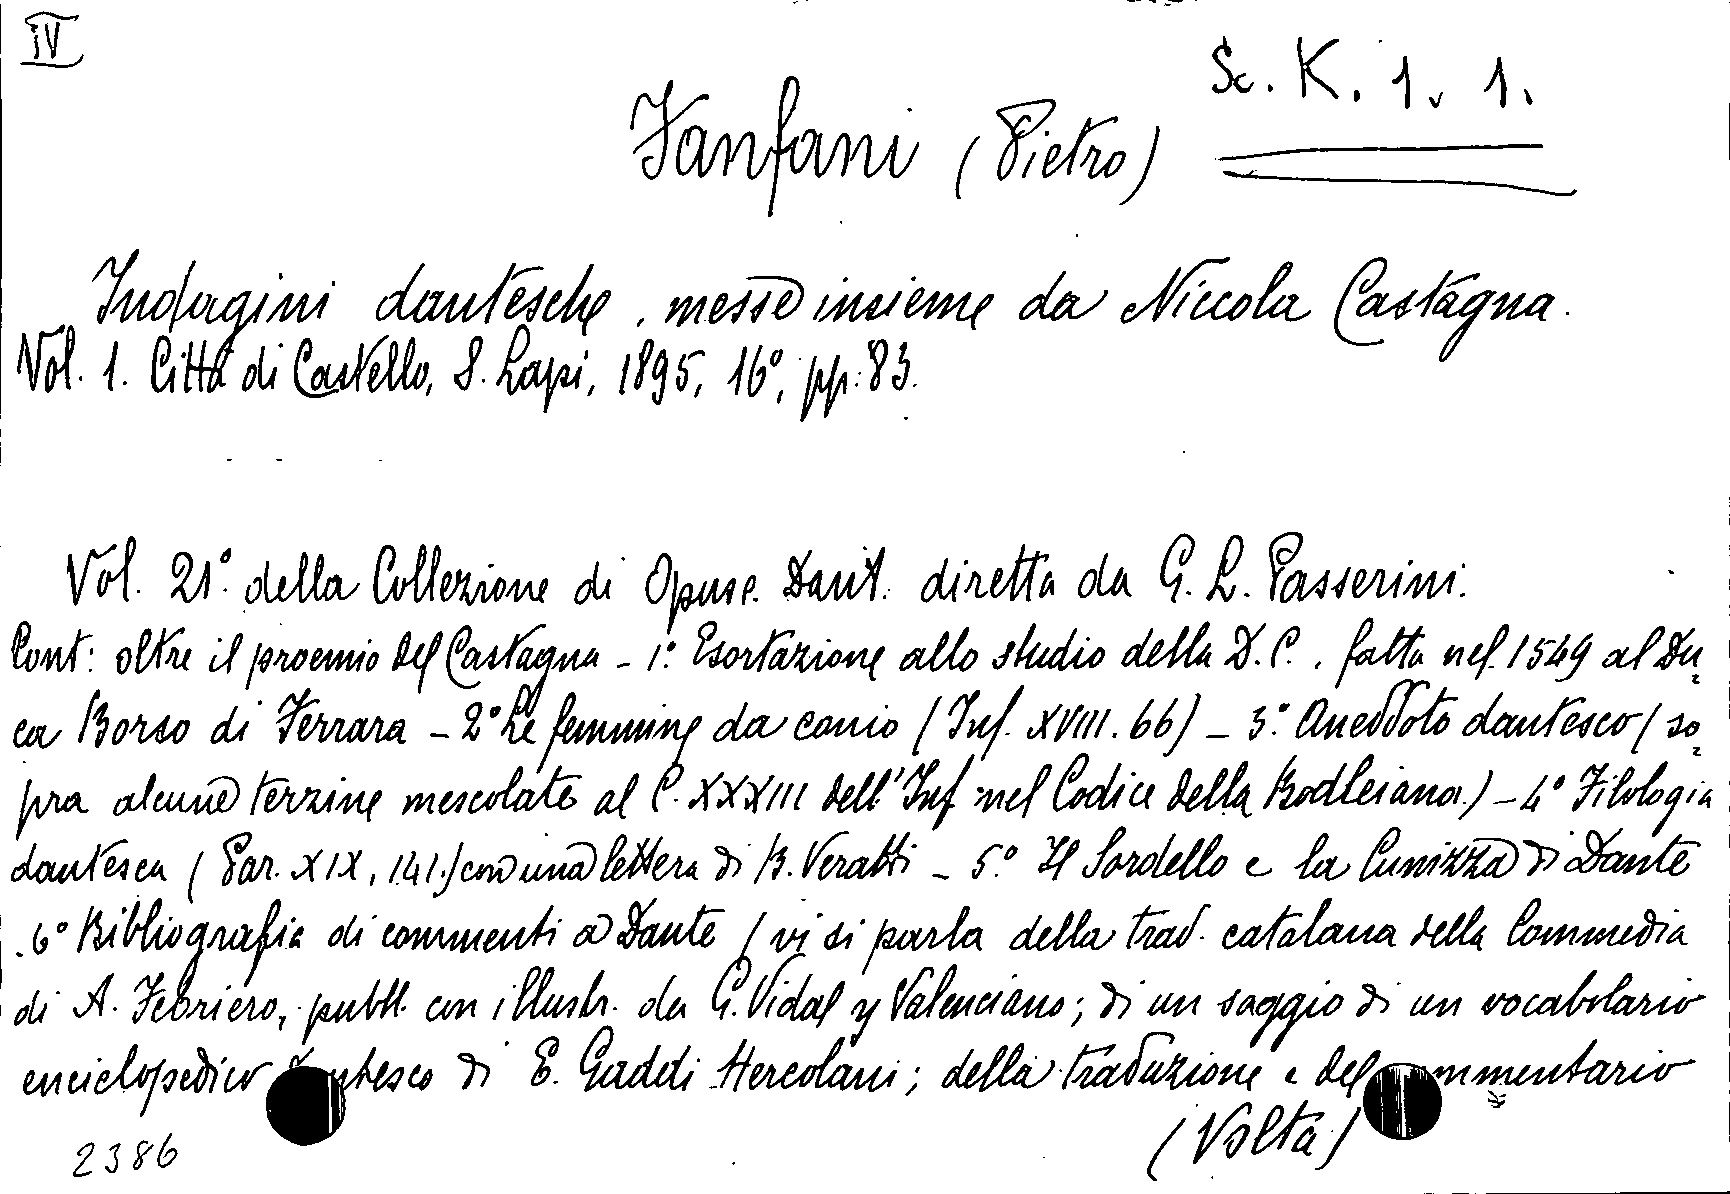 IV
Sc. K. 1. 1.
Fanfani (Pietro)
Indagini dantesche, messe insieme da Niccola Castagna.
Vol. 1. Città di Castello, S. Lapi, 1895, 16°, pp. 83.
Vol. 21° della Collezione di Opusc. Dant. diretta da G. L. Passerini.
Cont: oltre il proemio del Castagna - 1.° Esortazione allo studio della D. C., fatta nel 1549 al Du-
ca Borso di Ferrara - 2° Le femmine da conio (Inf. XVIII. 66) - 3.° Aneddoto dantesco (so-
pra alcune terzine mescolate al C. XXXIII dell'Inf. nel Codice della Bodleiana.) - 4° Filologia
dantesca (Par. XIX, 141.) con una lettera di B. Veratti - 5.° Il Sordello e la Cunizza di Dante
. 6° Bibliografia di commenti a Dante (vi si parla della trad. catalana della Commedia
di A. Febriero, pubbl. con illustr. da G. Vidal y Valenciano; di un saggio di un vocabolario
enciclopedico dantesco di E. Gaddi Hercolani; della traduzione e del commentario
(Volta)
2386